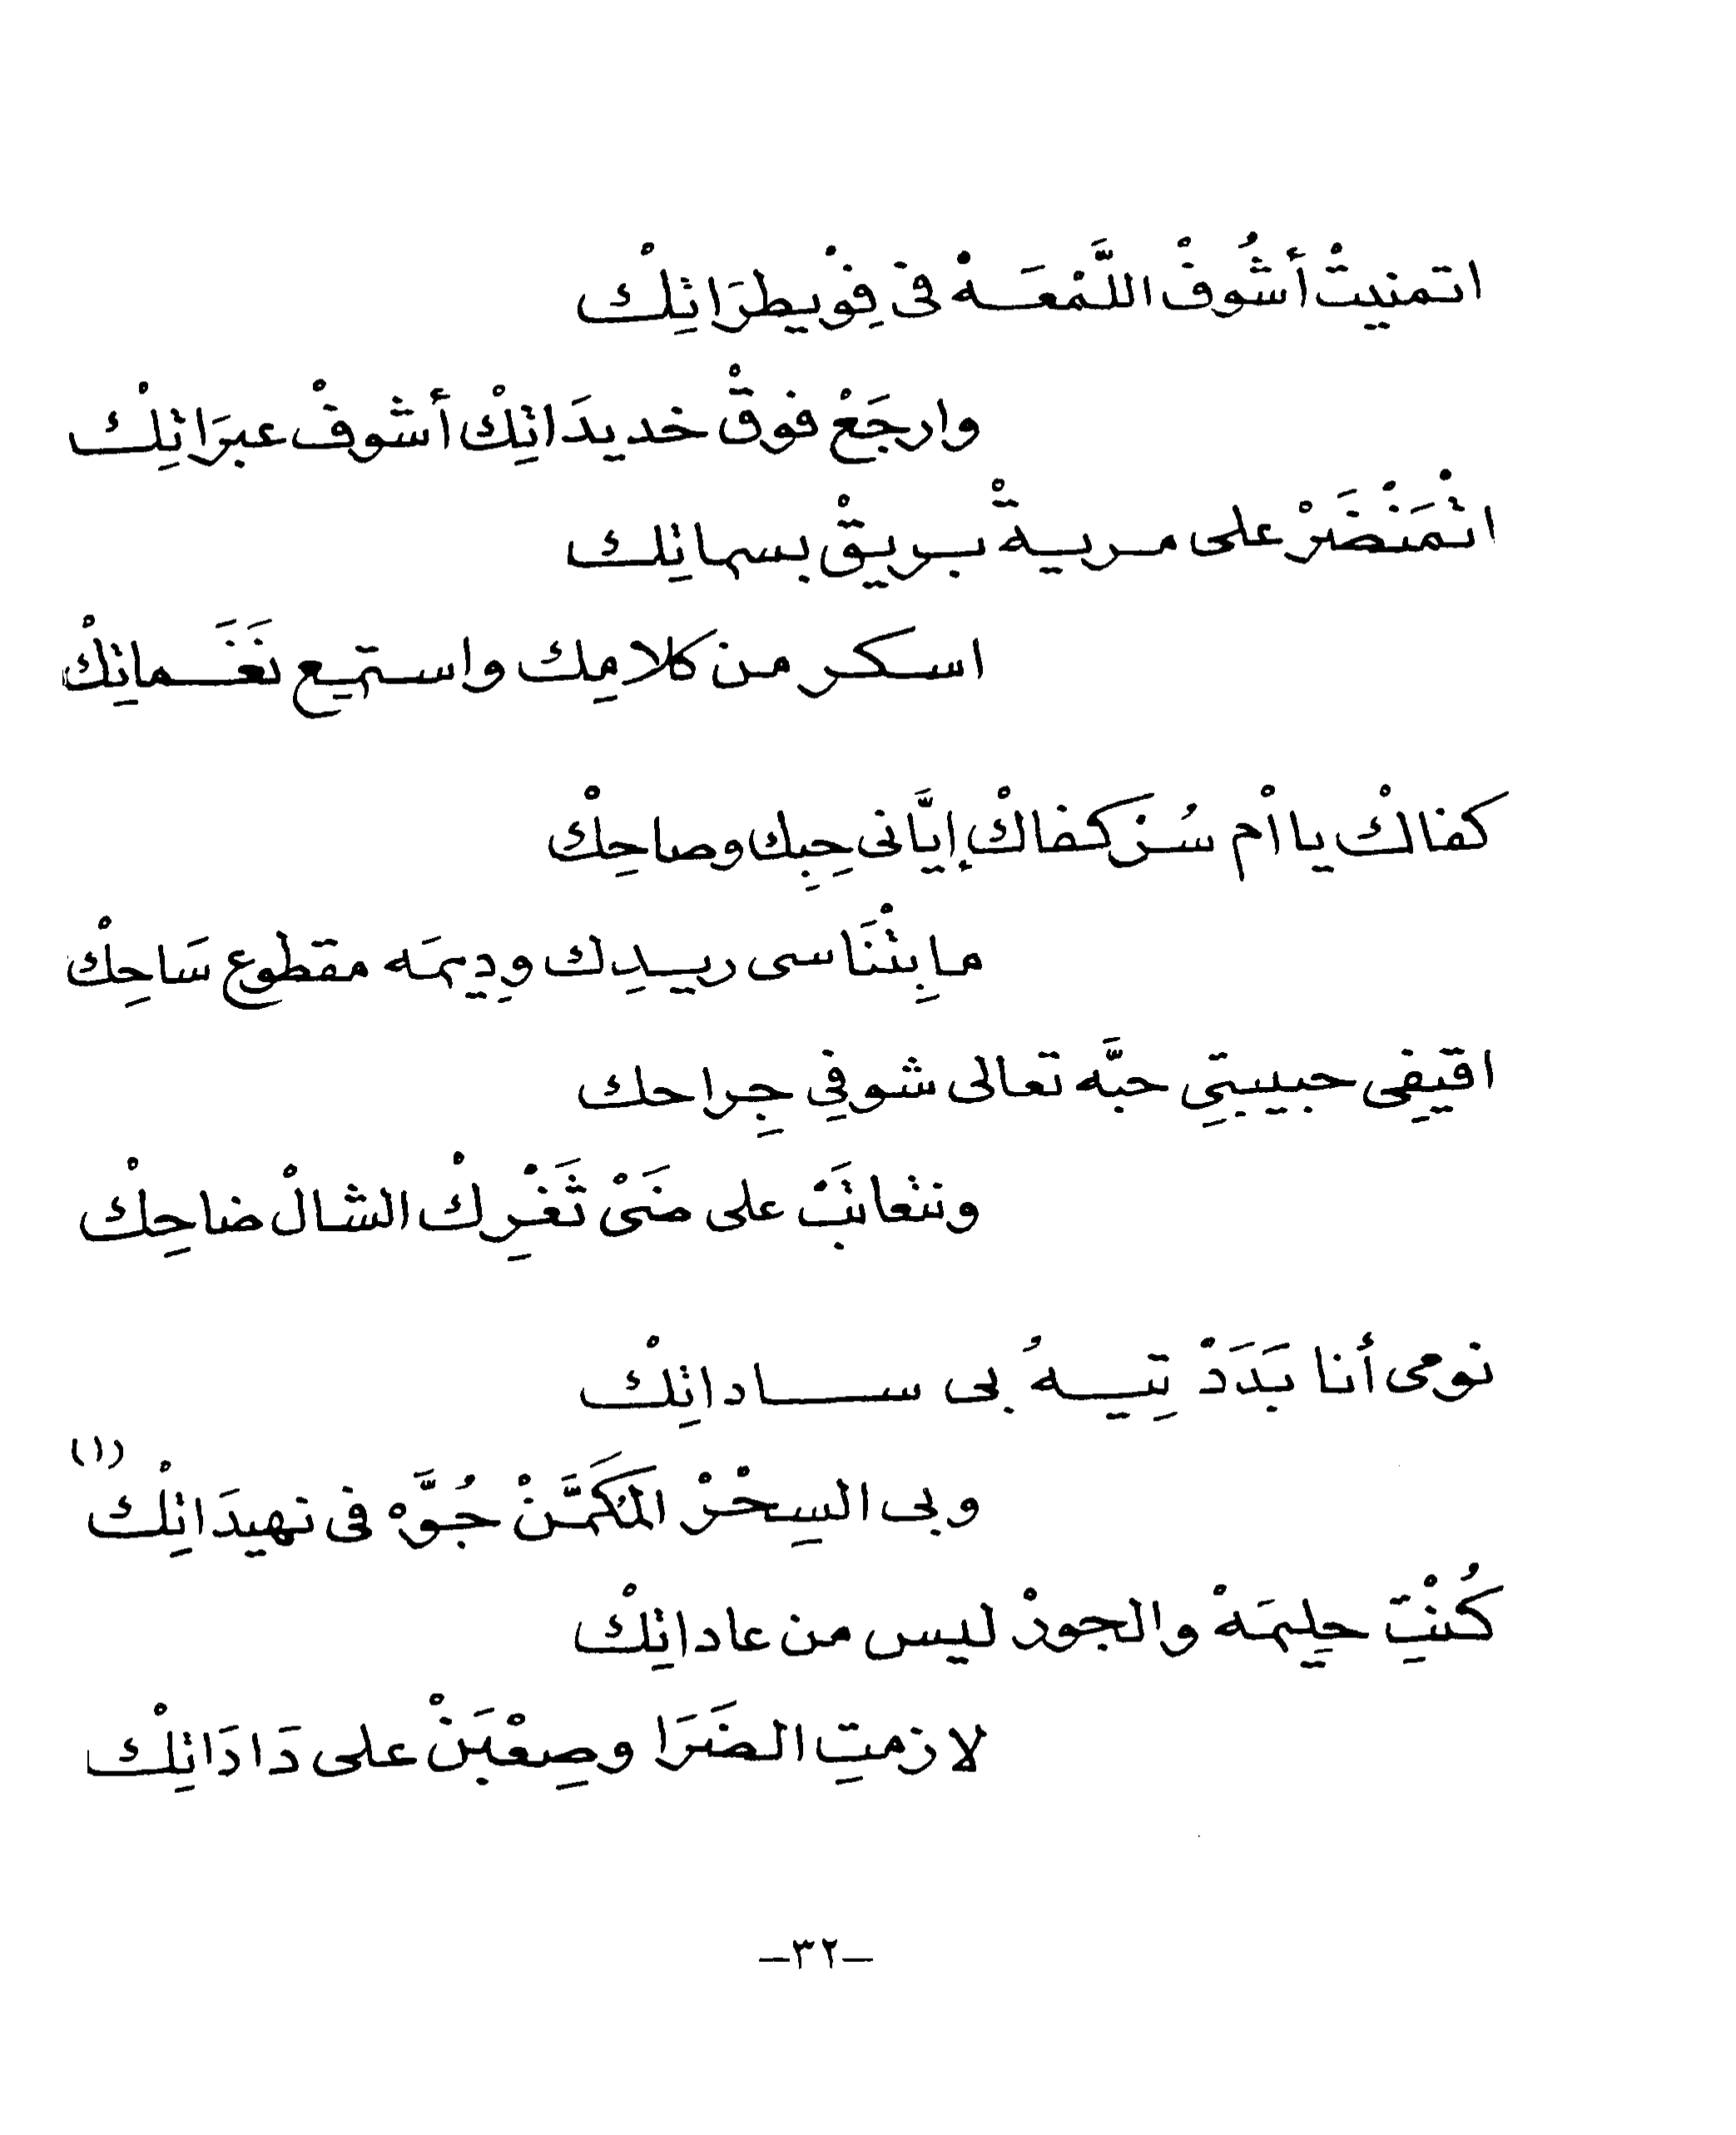 اتمنيتْ أشُوفْ اللَّمْعَـــهْ فى فِوْيطرَاتِلْك
وارجَعْ فوقْ خديدَاتِكْ أشوفْ عبرَاتِلْك
اتْمَنْضَرْ على مريةْ بريقْ بسماتِك
اسكر من كلامِك واستميع نَغَـماتِكْ
كفاكْ يا اْم سُـز كفاكْ إيَّانى حِبِك وصاحِكْ
ما بِتْنَاسى ريـدِك ودِيمَه مقطوع سَاحِكْ
اقيفِى حبيبتِي حبَّه تعالى شوفِي جِراحك
ونتعاتَبْ على ضَىْ ثَغْرِكْ الشالْ ضاحِكْ
نومى أنا بَدَدْ تِيـــهُ بى ســـاداتِكْ
وبى السِحْرْ المَكَمَّنْ جُوَّه فى نهيدَاتِكْ (١)
كُنْتِ حلِيمَهْ والجورْ ليس من عاداتِكْ
لازمتِ الضَرَا وصِعْبَنْ على دَادَاتِكْ
–٣٢–